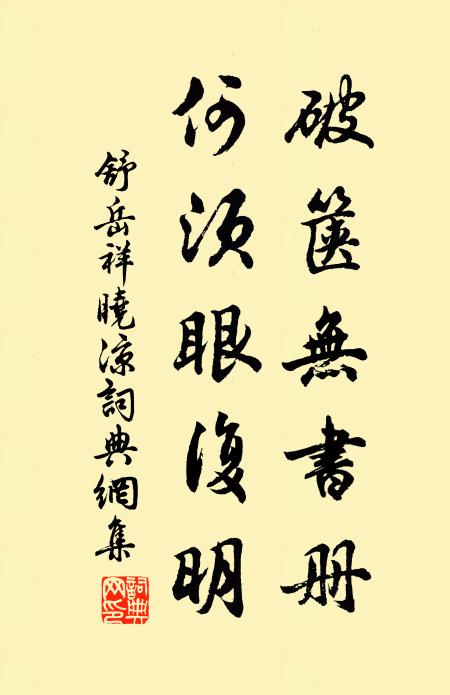 破篋無書册
何須眼復明
舒岳祥曉涼詞典網集
詞典網印